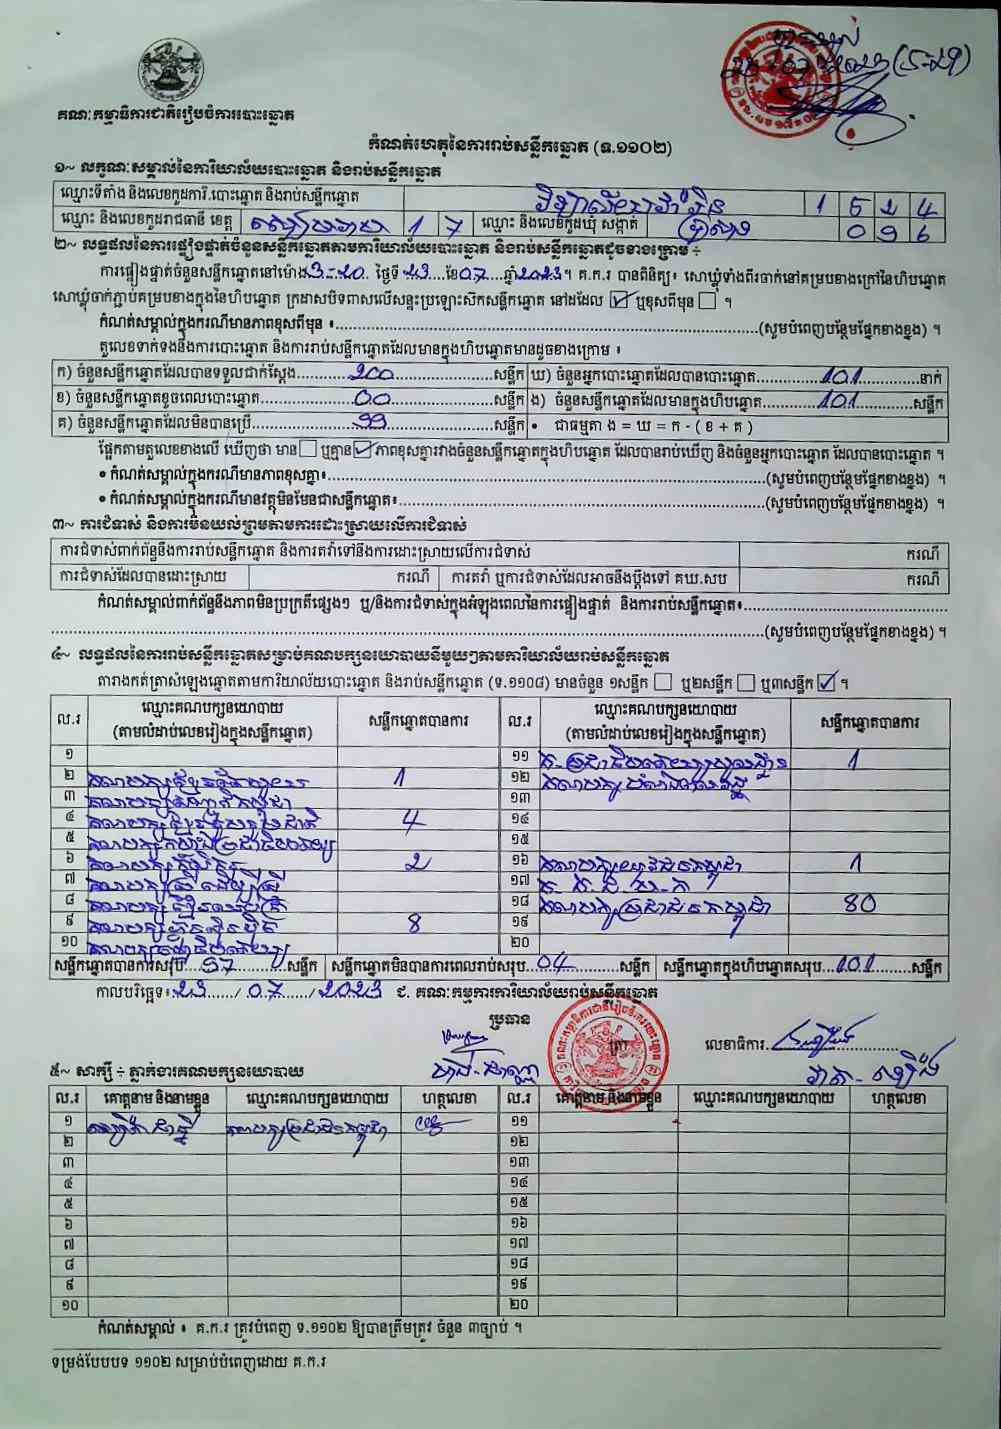 គណៈកម្មាធិការជាតិរៀបចំការបោះឆ្នោត
កំណត់ហេតុនៃការរាប់សន្លឹកឆ្នោត (ទ.១១០២)
១~ លក្ខណៈសម្គាល់នៃការិយាល័យបោះឆ្នោត និងរាប់សន្លឹកឆ្នោត
ឈ្មោះទីតាំង និងលេខកូដការិ.បោះឆ្នោត និងរាប់សន្លឹកឆ្នោត 1 5 2 4
ឈ្មោះ និងលេខកូដរាជធានី ខេត្ត សៀមរាប 1 7 ឈ្មោះ និងលេខកូដឃុំ សង្កាត់ 0 9 6
២~ លទ្ធផលនៃការផ្ទៀងផ្ទាត់ចំនួនសន្លឹកឆ្នោតតាមការិយាល័យបោះឆ្នោត និងរាប់សន្លឹកឆ្នោតដូចខាងក្រោម ÷
ការផ្ទៀងផ្ទាត់ចំនួនសន្លឹកឆ្នោតនៅម៉ោង 3-20 ថ្ងៃទី 23 ខែ 07 ឆ្នាំ 2023 ។ គ.ក.រ បានពិនិត្យ៖ សោឃ្លុំទាំងពីរចាក់នៅគម្របខាងក្រៅនៃហិបឆ្នោត
សោឃ្លុំចាក់ភ្ជាប់គម្របខាងក្នុងនៃហិបឆ្នោត ក្រដាសបិទពាសលើសន្ទះប្រឡោះសិកសន្លឹកឆ្នោត នៅដដែល ☑ ឬខុសពីមុន ☐ ។
កំណត់សម្គាល់ក្នុងករណីមានភាពខុសពីមុន ៖ (សូមបំពេញបន្ថែមផ្នែកខាងខ្នង) ។
តួលេខទាក់ទងនឹងការបោះឆ្នោត និងការរាប់សន្លឹកឆ្នោតដែលមានក្នុងហិបឆ្នោតមានដូចខាងក្រោម ៖
ក) ចំនួនសន្លឹកឆ្នោតដែលបានទទួលជាក់ស្តែង 200 សន្លឹក ឃ) ចំនួនអ្នកបោះឆ្នោតដែលបានបោះឆ្នោត 101 នាក់
ខ) ចំនួនសន្លឹកឆ្នោតខូចពេលបោះឆ្នោត 00 សន្លឹក ង) ចំនួនសន្លឹកឆ្នោតដែលមានក្នុងហិបឆ្នោត 101 សន្លឹក
គ) ចំនួនសន្លឹកឆ្នោតដែលមិនបានប្រើ 99 សន្លឹក • ជាធម្មតា ង = ឃ = ក - ( ខ + គ )
ផ្អែកតាមតួលេខខាងលើ ឃើញថា មាន ☐ ឬគ្មាន ☑ ភាពខុសគ្នារវាងចំនួនសន្លឹកឆ្នោតក្នុងហិបឆ្នោត ដែលបានរាប់ឃើញ និងចំនួនអ្នកបោះឆ្នោត ដែលបានបោះឆ្នោត ។
• កំណត់សម្គាល់ក្នុងករណីមានភាពខុសគ្នា៖ (សូមបំពេញបន្ថែមផ្នែកខាងខ្នង) ។
• កំណត់សម្គាល់ក្នុងករណីមានវត្ថុមិនមែនជាសន្លឹកឆ្នោត៖ (សូមបំពេញបន្ថែមផ្នែកខាងខ្នង) ។
៣~ ការជំទាស់ និងការមិនយល់ព្រមតាមការដោះស្រាយលើការជំទាស់
ការជំទាស់ពាក់ព័ន្ធនឹងការរាប់សន្លឹកឆ្នោត និងការតវ៉ាទៅនឹងការដោះស្រាយលើការជំទាស់ ករណី
ការជំទាស់ដែលបានដោះស្រាយ ករណី ការតវ៉ា ឬការជំទាស់ដែលអាចនឹងប្តឹងទៅ គឃ.សប ករណី
កំណត់សម្គាល់ពាក់ព័ន្ធនឹងភាពមិនប្រក្រតីផ្សេងៗ ឬ/និងការជំទាស់ក្នុងអំឡុងពេលនៃការផ្ទៀងផ្ទាត់ និងការរាប់សន្លឹកឆ្នោត៖
(សូមបំពេញបន្ថែមផ្នែកខាងខ្នង) ។
៤~ លទ្ធផលនៃការរាប់សន្លឹកឆ្នោតសម្រាប់គណបក្សនយោបាយនីមួយៗតាមការិយាល័យរាប់សន្លឹកឆ្នោត
តារាងកត់ត្រាសំឡេងឆ្នោតតាមការិយាល័យបោះឆ្នោត និងរាប់សន្លឹកឆ្នោត (ទ.១១០៨) មានចំនួន ១សន្លឹក ☐ ឬ២សន្លឹក ☐ ឬ៣សន្លឹក ☑ ។
ល.រ ឈ្មោះគណបក្សនយោបាយ សន្លឹកឆ្នោតបានការ ល.រ ឈ្មោះគណបក្សនយោបាយ សន្លឹកឆ្នោតបានការ
(តាមលំដាប់លេខរៀងក្នុងសន្លឹកឆ្នោត) (តាមលំដាប់លេខរៀងក្នុងសន្លឹកឆ្នោត)
១ ១១ 1
២ 1 ១២
៣ ១៣
៤ 4 ១៤
៥ ១៥
៦ 2 ១៦ គណបក្សយុវជនកម្ពុជា 1
៧ ១៧
៨ ១៨ គណបក្សប្រជាជនកម្ពុជា 80
៩ 8 ១៩
១០ ២០
សន្លឹកឆ្នោតបានការសរុប 97 សន្លឹក សន្លឹកឆ្នោតមិនបានការពេលរាប់សរុប 04 សន្លឹក សន្លឹកឆ្នោតក្នុងហិបឆ្នោតសរុប 101 សន្លឹក
កាលបរិច្ឆេទ៖ 23 / 07 / 2023 ជ. គណៈកម្មការការិយាល័យរាប់សន្លឹកឆ្នោត
ប្រធាន
ត្រា លេខាធិការ
៥~ សាក្សី ÷ ភ្នាក់ងារគណបក្សនយោបាយ
ល.រ គោត្តនាម និងនាមខ្លួន ឈ្មោះគណបក្សនយោបាយ ហត្ថលេខា ល.រ គោត្តនាម និងនាមខ្លួន ឈ្មោះគណបក្សនយោបាយ ហត្ថលេខា
១ គណបក្សប្រជាជនកម្ពុជា ១១
២ ១២
៣ ១៣
៤ ១៤
៥ ១៥
៦ ១៦
៧ ១៧
៨ ១៨
៩ ១៩
១០ ២០
កំណត់សម្គាល់ ៖ គ.ក.រ ត្រូវបំពេញ ទ.១១០២ ឱ្យបានត្រឹមត្រូវ ចំនួន ៣ច្បាប់ ។
ទម្រង់បែបបទ ១១០២ សម្រាប់បំពេញដោយ គ.ក.រ